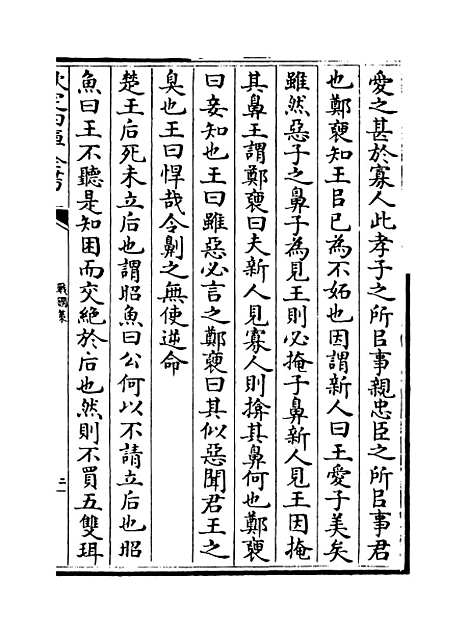 愛之甚於寡人此孝子之所㠯事親忠臣之所㠯事君
也鄭襃知王㠯已為不妬也因謂新人曰王愛子美矣
雖然惡子之鼻子為見王則必掩子鼻新人見王因掩
其鼻王謂鄭襃曰夫新人見寡人則揜其鼻何也鄭襃
曰妾知也王曰雖惡必言之鄭襃曰其似惡聞君王之
臭也王曰悍哉令劓之無使逆命
楚王后死未立后也謂昭魚曰公何以不請立后也昭
魚曰王不聽是知困而交絶於后也然則不買五雙珥
欽定四庫全書
戰國策
二